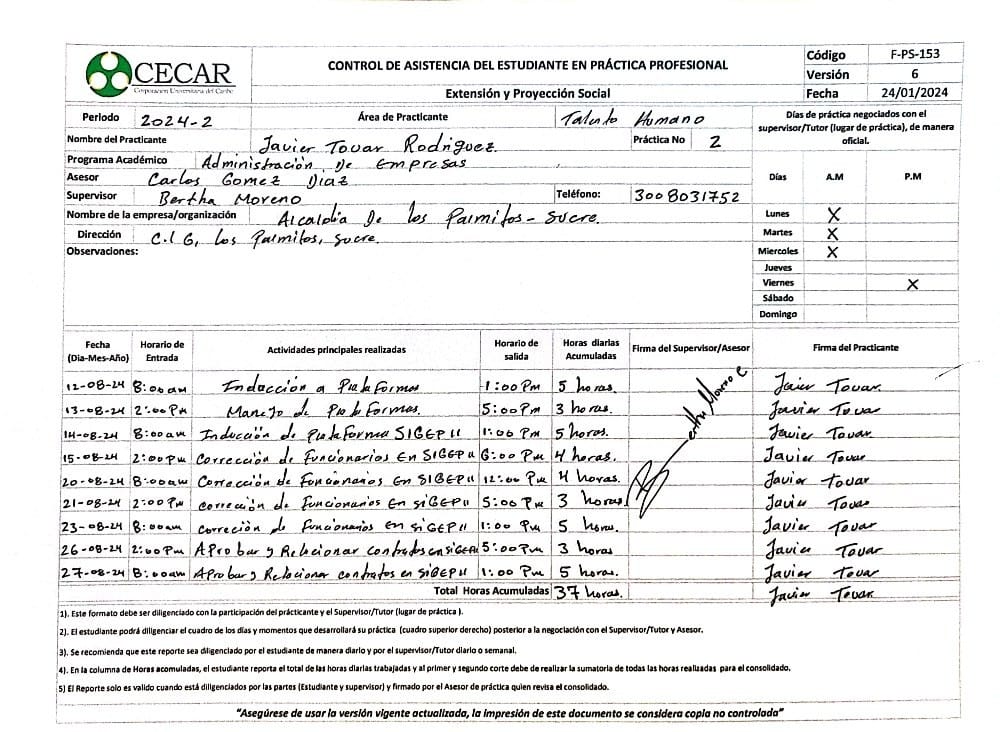 CECAR
Corporación Universitaria del Caribe
CONTROL DE ASISTENCIA DEL ESTUDIANTE EN PRÁCTICA PROFESIONAL
Extensión y Proyección Social
Código F-PS-153
Versión 6
Fecha 24/01/2024
Periodo 2024-2 Área de Practicante Talento Humano
Nombre del Practicante Javier Tovar Rodriguez Práctica No 2
Programa Académico Administración De Empresas
Asesor Carlos Gomez Diaz
Supervisor Bertha Moreno Teléfono: 3008031752
Nombre de la empresa/organización Alcaldia De los Palmitos - Sucre.
Dirección C.l 6, Los Palmitos, Sucre.
Observaciones:
Días de práctica negociados con el supervisor/Tutor (lugar de práctica), de manera oficial.
Días A.M P.M
Lunes X
Martes X
Miercoles X
Jueves
Viernes X
Sábado
Domingo
Fecha (Dia-Mes-Año) Horario de Entrada Actividades principales realizadas Horario de salida Horas diarias Acumuladas Firma del Supervisor/Asesor Firma del Practicante
12-08-24 8:00am Inducción a Plataformas 1:00 Pm 5 horas. Javier Tovar
13-08-24 2:00 Pm Manejo de Plataformas. 5:00Pm 3 horas. Javier Tovar
14-08-24 8:00am Inducción de Plataforma SIGEP II 1:00 Pm 5 horas. Javier Tovar
15-08-24 2:00Pm Corrección de Funcionarios En SIGEP II 6:00 Pm 4 horas. Javier Tovar
20-08-24 8:00am Corrección de Funcionarios En SIGEP II 12:00 Pm 4 horas. Javier Tovar
21-08-24 2:00 Pm corrección de Funcionarios En SIGEP II 5:00 Pm 3 horas Javier Tovar
23-08-24 8:00am Correción de Funcionarios en SIGEP II 1:00 Pm 5 horas. Javier Tovar
26-08-24 2:00Pm Aprobar y Relacionar contratos en SIGEP II 5:00Pm 3 horas Javier Tovar
27-08-24 8:00am Aprobar y Relacionar contratos en SIGEP II 1:00 Pm 5 horas. Javier Tovar
Total Horas Acumuladas 37 horas. Javier Tovar
Bertha Moreno C
1). Este formato debe ser diligenciado con la participación del prácticante y el Supervisor/Tutor (lugar de práctica ).
2). El estudiante podrá diligenciar el cuadro de los días y momentos que desarrollará su práctica (cuadro superior derecho) posterior a la negociación con el Supervisor/Tutor y Asesor.
3). Se recomienda que este reporte sea diligenciado por el estudiante de manera diario y por el supervisor/Tutor diario o semanal.
4). En la columna de Horas acomuladas, el estudiante reporta el total de las horas diarias trabajadas y al primer y segundo corte debe de realizar la sumatoria de todas las horas realizadas para el consolidado.
5) El Reporte solo es valido cuando está diligenciados por las partes (Estudiante y supervisor) y firmado por el Asesor de práctica quien revisa el consolidado.
"Asegúrese de usar la versión vigente actualizada, la impresión de este documento se considera copia no controlada"